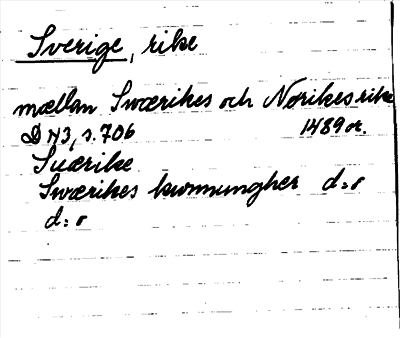 Sverige, rike
mællan Swærikes och Norikes rike
DN 3, s. 706 1489 or.
Suærike
Swærikes konnungher d:o
d:o